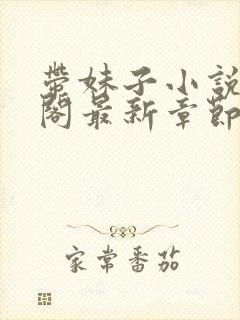 带妹子小說
閣最新章節
家常番茄